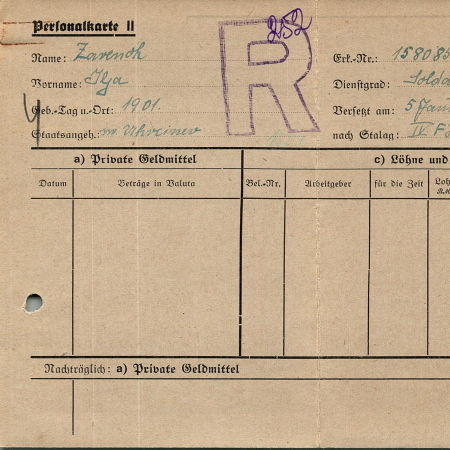 Personalkarte II
252
R
Name: Zarenok Erk.-Nr.: 158085
Vorname: Ilja Dienstgrad: Solda
Geb.-Tag u.-Ort: 1901. Versetzt am: 5 Jan
Staatsangeh.: nach Stalag: IV F
a) Private Geldmittel c) Löhne und
Datum Beträge in Valuta Bel.-Nr. Arbeitgeber für die Zeit Loh
RM
Nachträglich: a) Private Geldmittel